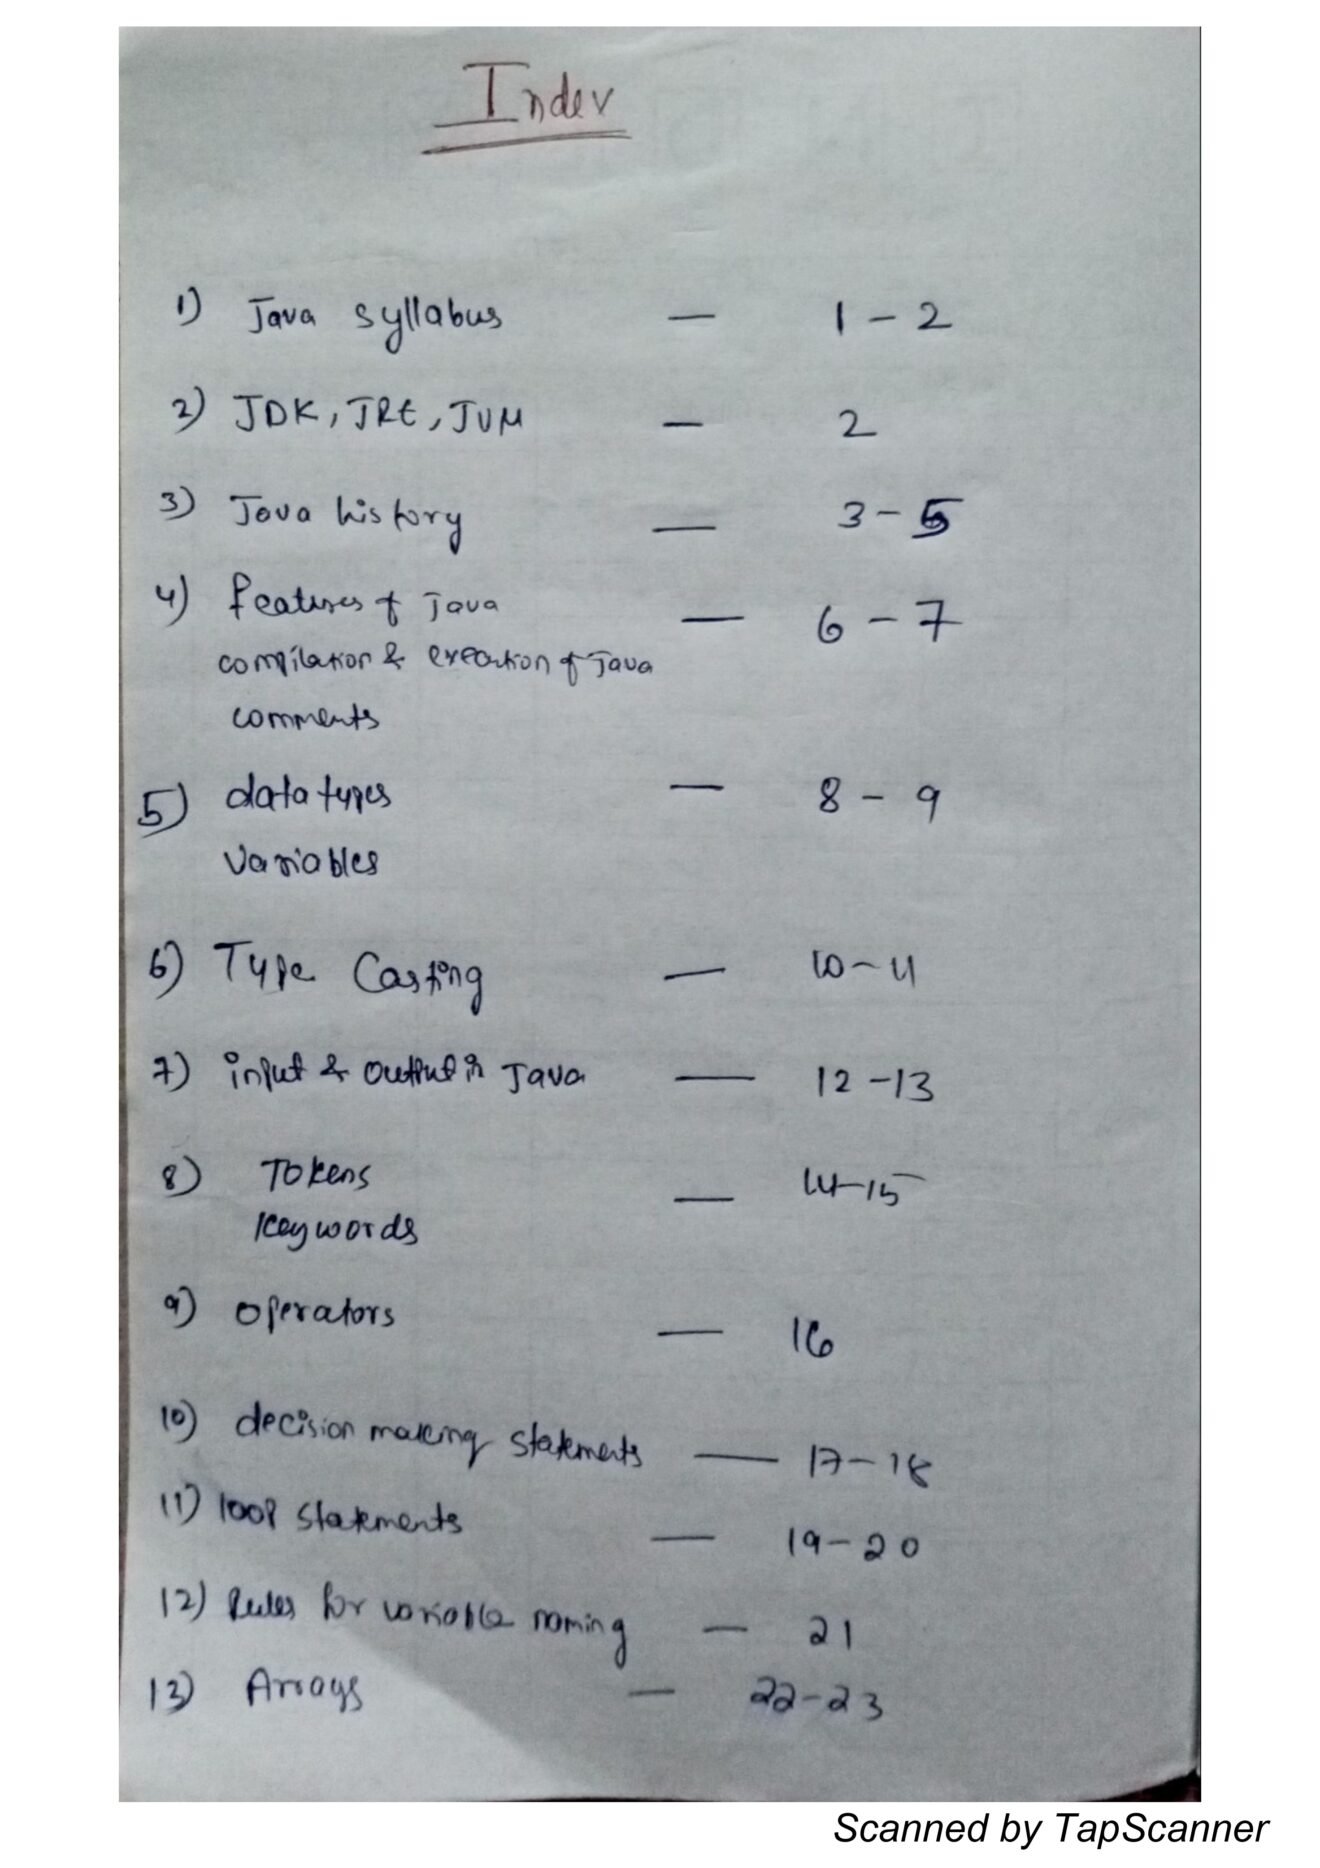 Index
1) Java syllabus — 1 - 2
2) JDK, JRE, JVM — 2
3) Java history — 3 - 5
4) features of Java — 6 - 7
compilation & execution of Java
comments
5) data types — 8 - 9
variables
6) Type Casting — 10 - 11
7) input & output in Java — 12 - 13
8) Tokens — 14-15
keywords
9) operators — 16
10) decision making statements — 17 - 18
11) loop statements — 19 - 20
12) Rules for variable naming — 21
13) Arrays — 22 - 23
Scanned by TapScanner